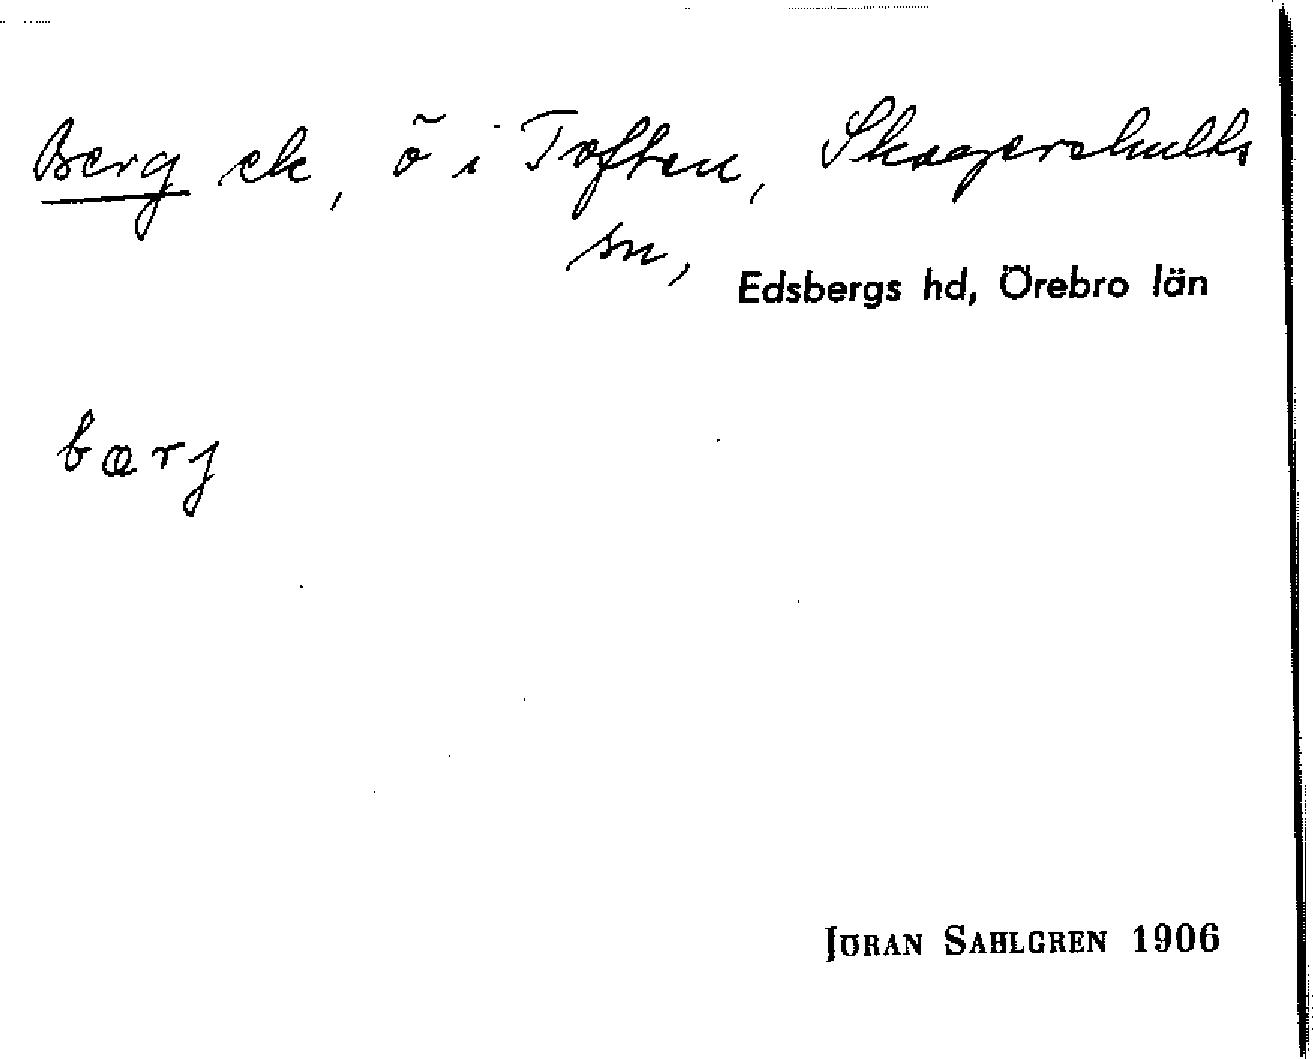 Berg ek, ö i Toften, Skagershults
sn,
Edsbergs hd, Örebro län
bærj
JÖRAN SAHLGREN 1906